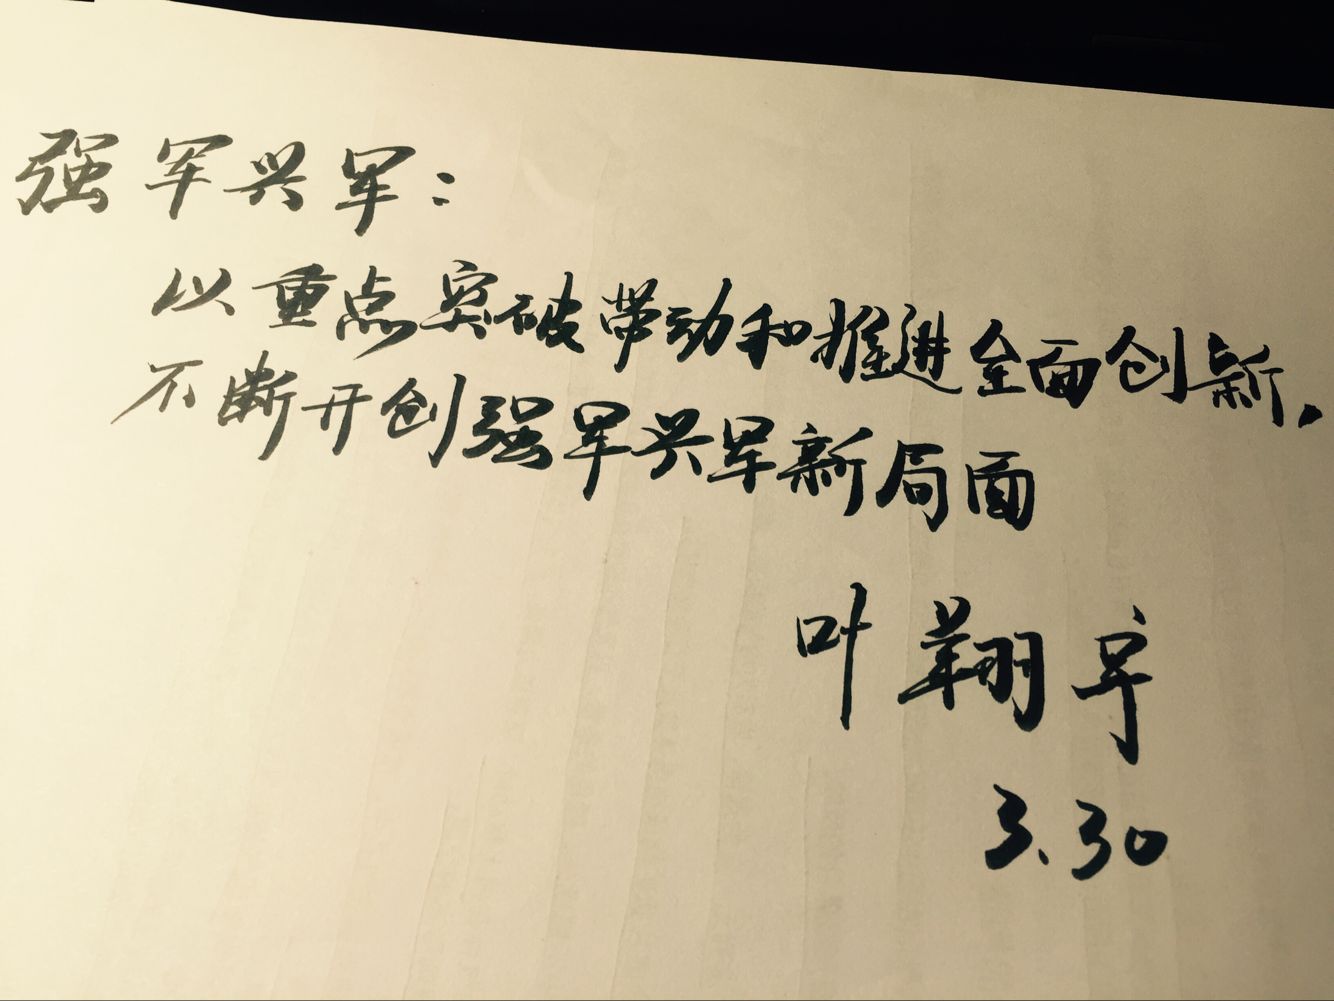 强军兴军：
以重点突破带动和推进全面创新，
不断开创强军兴军新局面
叶翔宇
3.30